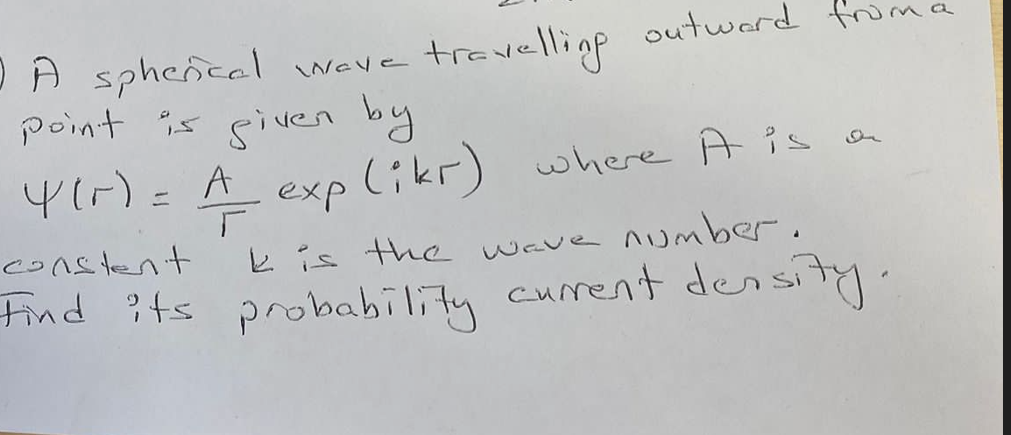 ) A spherical wave travelling outward from a
point is given by
Ψ(r) = A/r exp(ikr) where A is a
constant k is the wave number.
Find its probability current density.